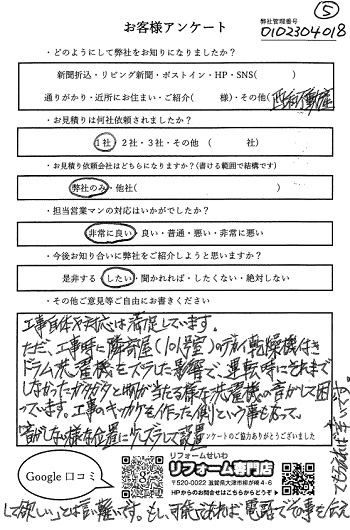 ⑤
お客様アンケート
弊社管理番号
0102304018
・どのようにして弊社をお知りになりましたか?
新聞折込・リビング新聞・ポストイン・HP・SNS( )
通りがかり・近所にお住まい・ご紹介( 様)・その他( 不動産
・お見積りは何社依頼されましたか?
1社 2社・3社・その他 ( 社)
・お見積り依頼会社はどちらになりますか?(書ける範囲で結構です)
弊社のみ・他社( )
・担当営業マンの対応はいかがでしたか?
非常に良い・良い・普通・悪い・非常に悪い
・今後お知り合いに弊社をご紹介しようと思いますか?
是非する・したい・聞かれれば・したくない・絶対しない
・その他ご意見等ご自由にお書きください
工事自体や対応は満足しています。
ただ、工事時に隣部屋(101号室)のデカイ乾燥機付き
ドラム洗濯機をズラした影響で、運転時にそれまで
しなかったガタガタと 物が当たる様な洗濯機の音がして困
っています。工事のキッカケを作った側という事もあって、
音がしない様な位置に少しズラして設置
アンケートのご協力ありがとうございました
Google 口コミ
リフォームせいわ
リフォーム専門店
〒520-0022 滋賀県大津市柳が崎4-6
HPからのお問合せはこちらからどうぞ
して欲しい」とは言い難いです。もし、可能であれば、電話ででも事を伝え